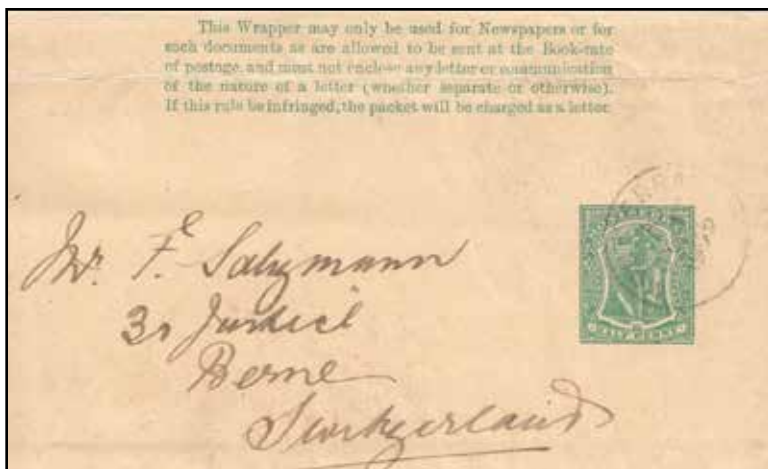 This Wrapper may only be used for Newspapers or for
such documents as are allowed to be sent at the Book-rate
of postage, and must not enclose any letter or communication
of the nature of a letter (whether separate or otherwise).
If this rule be infringed, the packet will be charged as a letter.
Mr. F. Salzmann
Berne
Switzerland